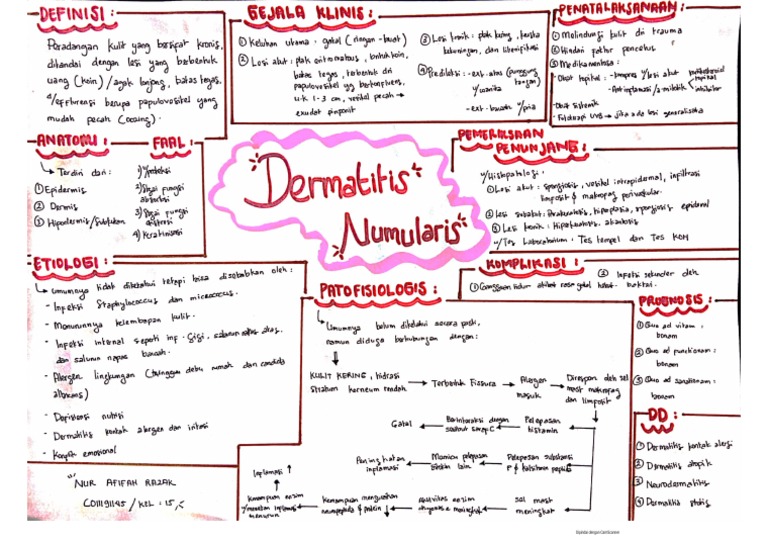 DEFINISI :
Peradangan kulit yang bersifat kronis,
ditandai dengan lesi yang berbentuk
uang (koin) / agak lonjong, batas tegas,
d/ efluresensi berupa papulovesikel yang
mudah pecah (oozing).
GEJALA KLINIS :
① Keluhan utama : gatal (ringan - berat)
② Lesi akut : plak eritematosus, bentuk koin,
batas tegas, terbentuk dri
papulovesikel yg berkonfluens,
uk 1-3 cm, vesikel pecah →
exudat pinpoint
③ Lesi kronik : plak kering,
kekuningan, dan likenifikasi
④ Predileksi : - ext. atas (punggung
tangan)
y/ wanita
- ext. bawah y/ pria
PENATALAKSANAAN :
① Melindungi kulit dri trauma
② Hindari faktor pencetus
③ Medikamentosa :
- Obat topikal : - kompres y/ lesi akut
- Antiinflamasi / a. mitotik
inhibitor
- Obat sistemik
- Fototerapi UVB → jika ada lesi generalisata
ANATOMI :
↳ Terdiri dari :
① Epidermis
② Dermis
③ Hipodermis / Subkutan
FAAL :
1) Proteksi
2) Sbgai fungsi
absorbsi
3) Sbgai fungsi
ekskresi
4) Keratinisasi
Dermatitis
Numularis
PEMERIKSAAN
PENUNJANG :
y/ Histopatologi :
① Lesi akut : spongiosis, vesikel intraepidermal, infiltrasi
limfosit & makrofag perivaskular.
② Lesi subakut : Parakeratosis, hiperplasia, spongiosis epidermal
③ Lesi kronik : Hiperkeratosis, akantosis
y/ Tes Laboratorium : Tes tempel dan Tes KOH
ETIOLOGI :
↳ Umumnya tidak diketahui tetapi bisa disebabkan oleh :
- Infeksi Staphylococcus dan micrococcus.
- Menurunnya kelembapan kulit.
- Infeksi internal seperti inf. Gigi, saluran napas atas,
dan saluran napas bawah.
- Alergen lingkungan (tungau debu rumah dan candida
albicans)
- Defisiensi nutrisi
- Dermatitis kontak alergen dan iritasi
- Konflik emosional
PATOFISIOLOGIS :
↳ Umumnya belum diketahui secara pasti,
namun diduga berhubungan dengan :
KULIT KERING, hidrasi
Stratum korneum rendah
→ Terbentuk Fissura
→ Alergen
masuk
→ Direspon oleh sel
mast makrofag
dan limfosit
Pelepasan
histamin
Berinteraksi dengan
saraf C
Gatal
Pelepasan substansi
P & kalsitonin peptide
Memicu pelepasan
sitokin lain
Peningkatan
inflamasi
sel mast
meningkat
Aktivitas enzim
chymase meningkat
Kemampuan menguraikan
neuropeptida & protein ↓
Kemampuan enzim
y/ menekan inflamasi
menurun
Inflamasi ↑
KOMPLIKASI :
① Gangguan tidur akibat rasa gatal hebat
② Infeksi sekunder oleh
bakteri.
PROGNOSIS :
① Quo ad vitam :
bonam
② Quo ad functionam :
bonam
③ Quo ad sanationam :
bonam
DD :
① Dermatitis kontak alergi
② Dermatitis atopik
③ Neurodermatitis
④ Dermatitis stasis
NUR AFIFAH RAZAK
C011191145 / KEL : 15
Dipindai dengan CamScanner